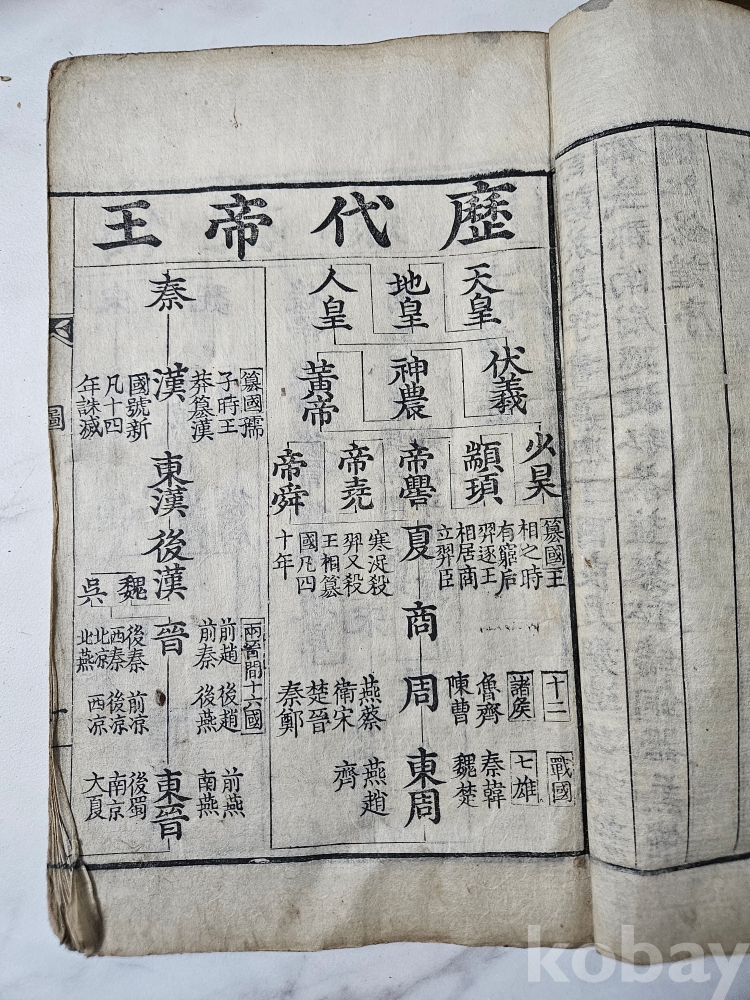 歷代帝王
天皇
地皇
人皇
伏羲
神農
黃帝
少昊
顓頊
帝嚳
帝堯
帝舜
夏
篡國王
相之時
有窮后
羿逐王
相居商
立羿臣
寒浞殺
羿又殺
王相篡
國凡四
十年
商
周
十二
諸侯
魯齊
陳曹
燕蔡
衛宋
楚晉
秦鄭
東周
戰國
七雄
秦韓
魏楚
燕趙
齊
秦
漢
篡國孺
子時王
莽篡漢
國號新
凡十四
年誅滅
東漢
後漢
魏
吳
晉
兩晉間十六國
前趙 後趙 前燕
前秦 後燕 南燕
後秦 前凉 後蜀
西秦 後凉 南京
北凉 西凉 大夏
北燕
東晉
圖
kobay